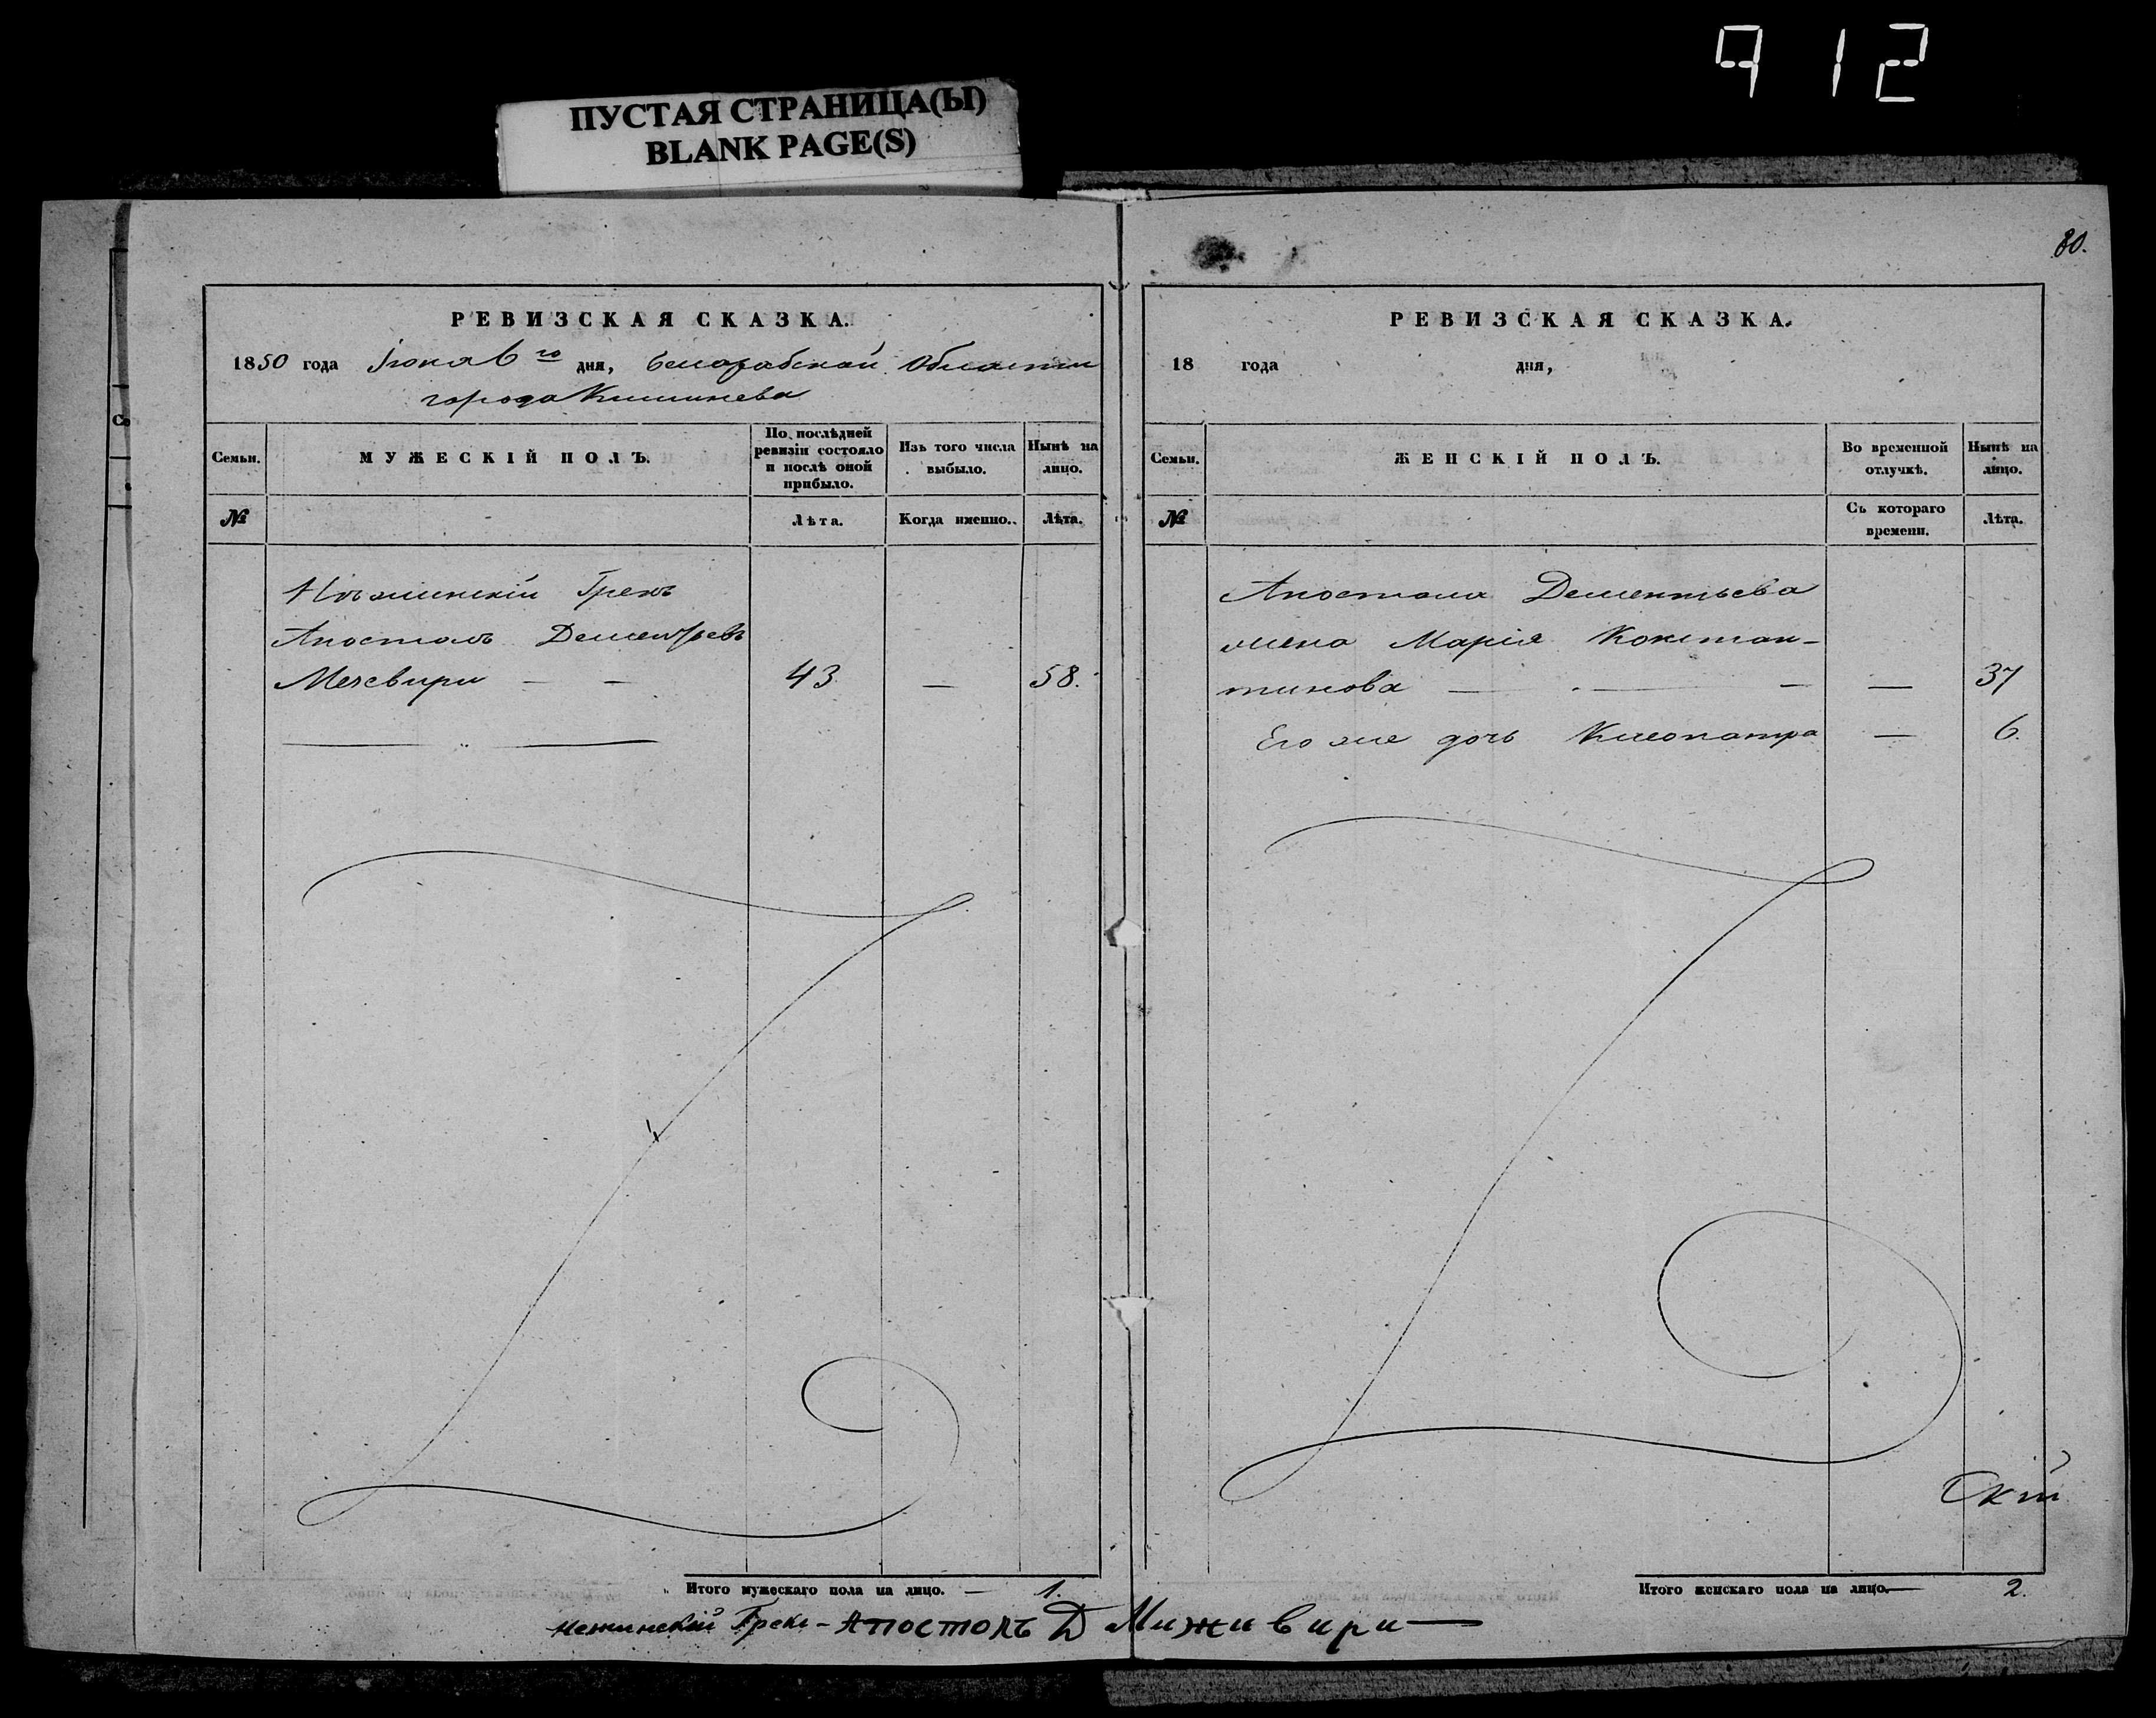 912
ПУСТАЯ СТРАНИЦА(Ы)
BLANK PAGE(S)
80.
РЕВИЗСКАЯ СКАЗКА.
1850 года Іюня 6 го дня, Бесарабской Области
города Кишинева
Семьи.
МУЖЕСКІЙ ПОЛЪ.
По послѣдней ревизіи состояло и послѣ оной прибыло.
Изъ того числа выбыло.
Нынѣ на лицо.
№
Лѣта.
Когда именно.
Лѣта.
Нѣжинскій Грекъ
Апостолъ Дементьевъ
Межевири — — 43 — 58.
Итого мужескаго пола на лицо. — 1.
РЕВИЗСКАЯ СКАЗКА.
18 года дня,
Семьи.
ЖЕНСКІЙ ПОЛЪ.
Во временной отлучкѣ.
Нынѣ на лицо.
№
Съ котораго времени.
Лѣта.
Апостола Дементьева
жена Марія Констан-
тинова — — — — 37
Его же дочь Клеопатра — 6.
Скій
Итого женскаго пола на лицо. — 2.
нежинскій Грекъ - Апостолъ Д Миживири —
Со